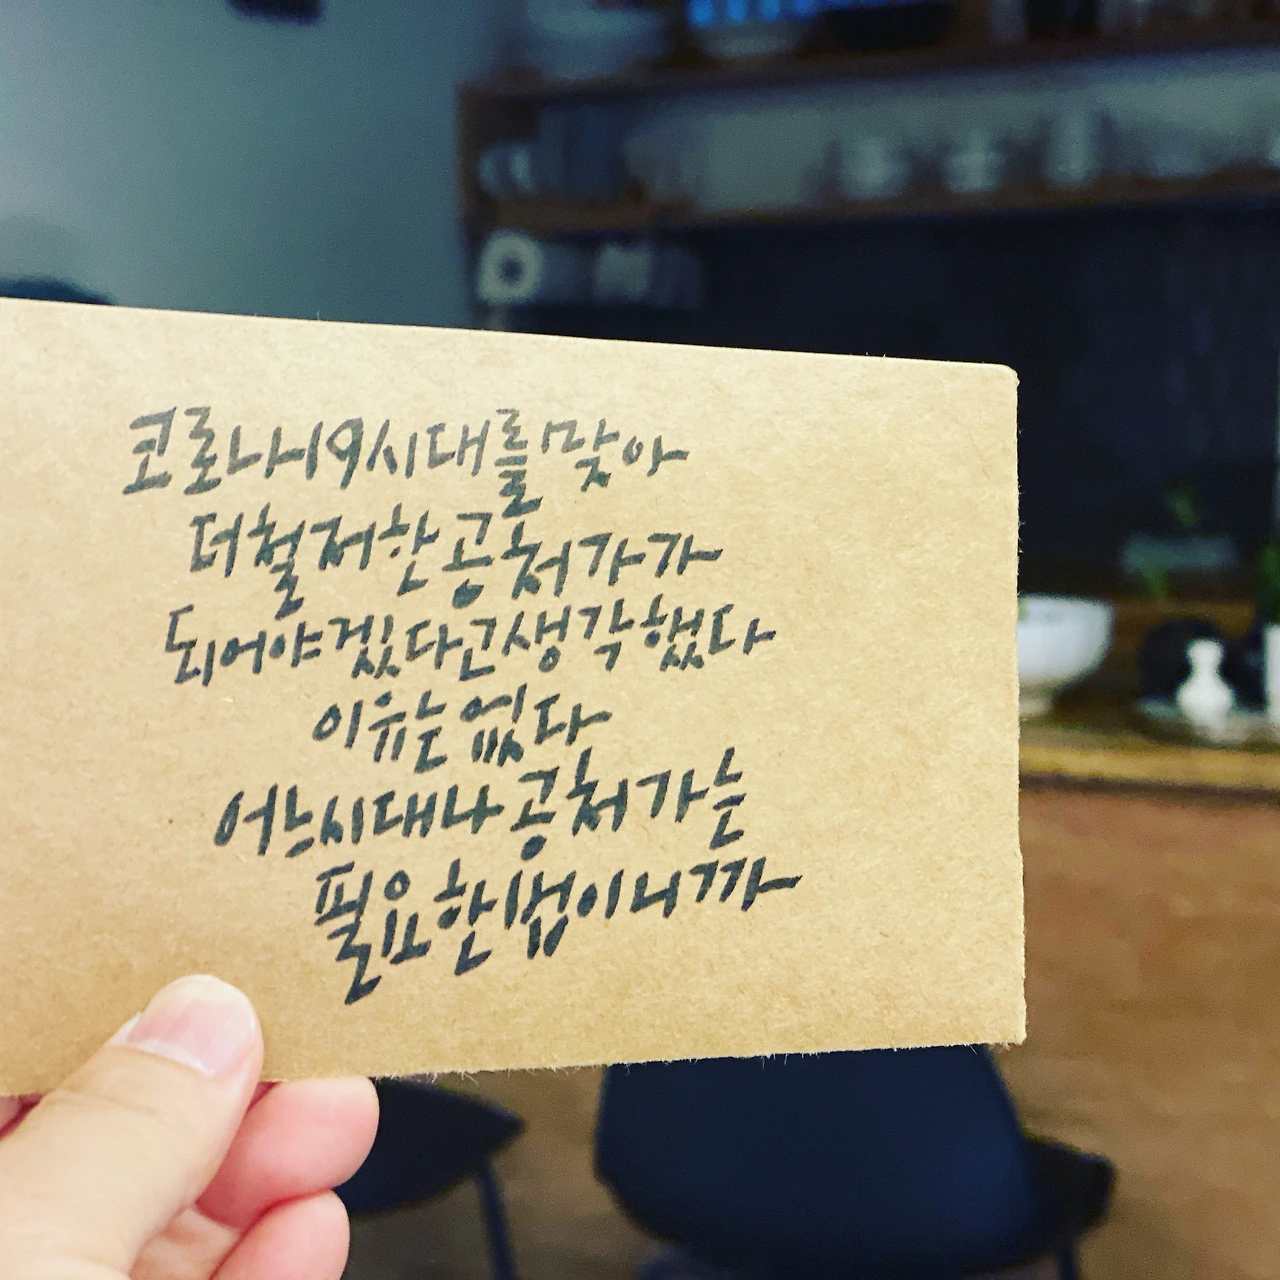 코로나19시대를 맞아
더 철저한 공처가가
되어야겠다고 생각했다
이유는 없다
어느시대나 공처가는
필요한 법이니까